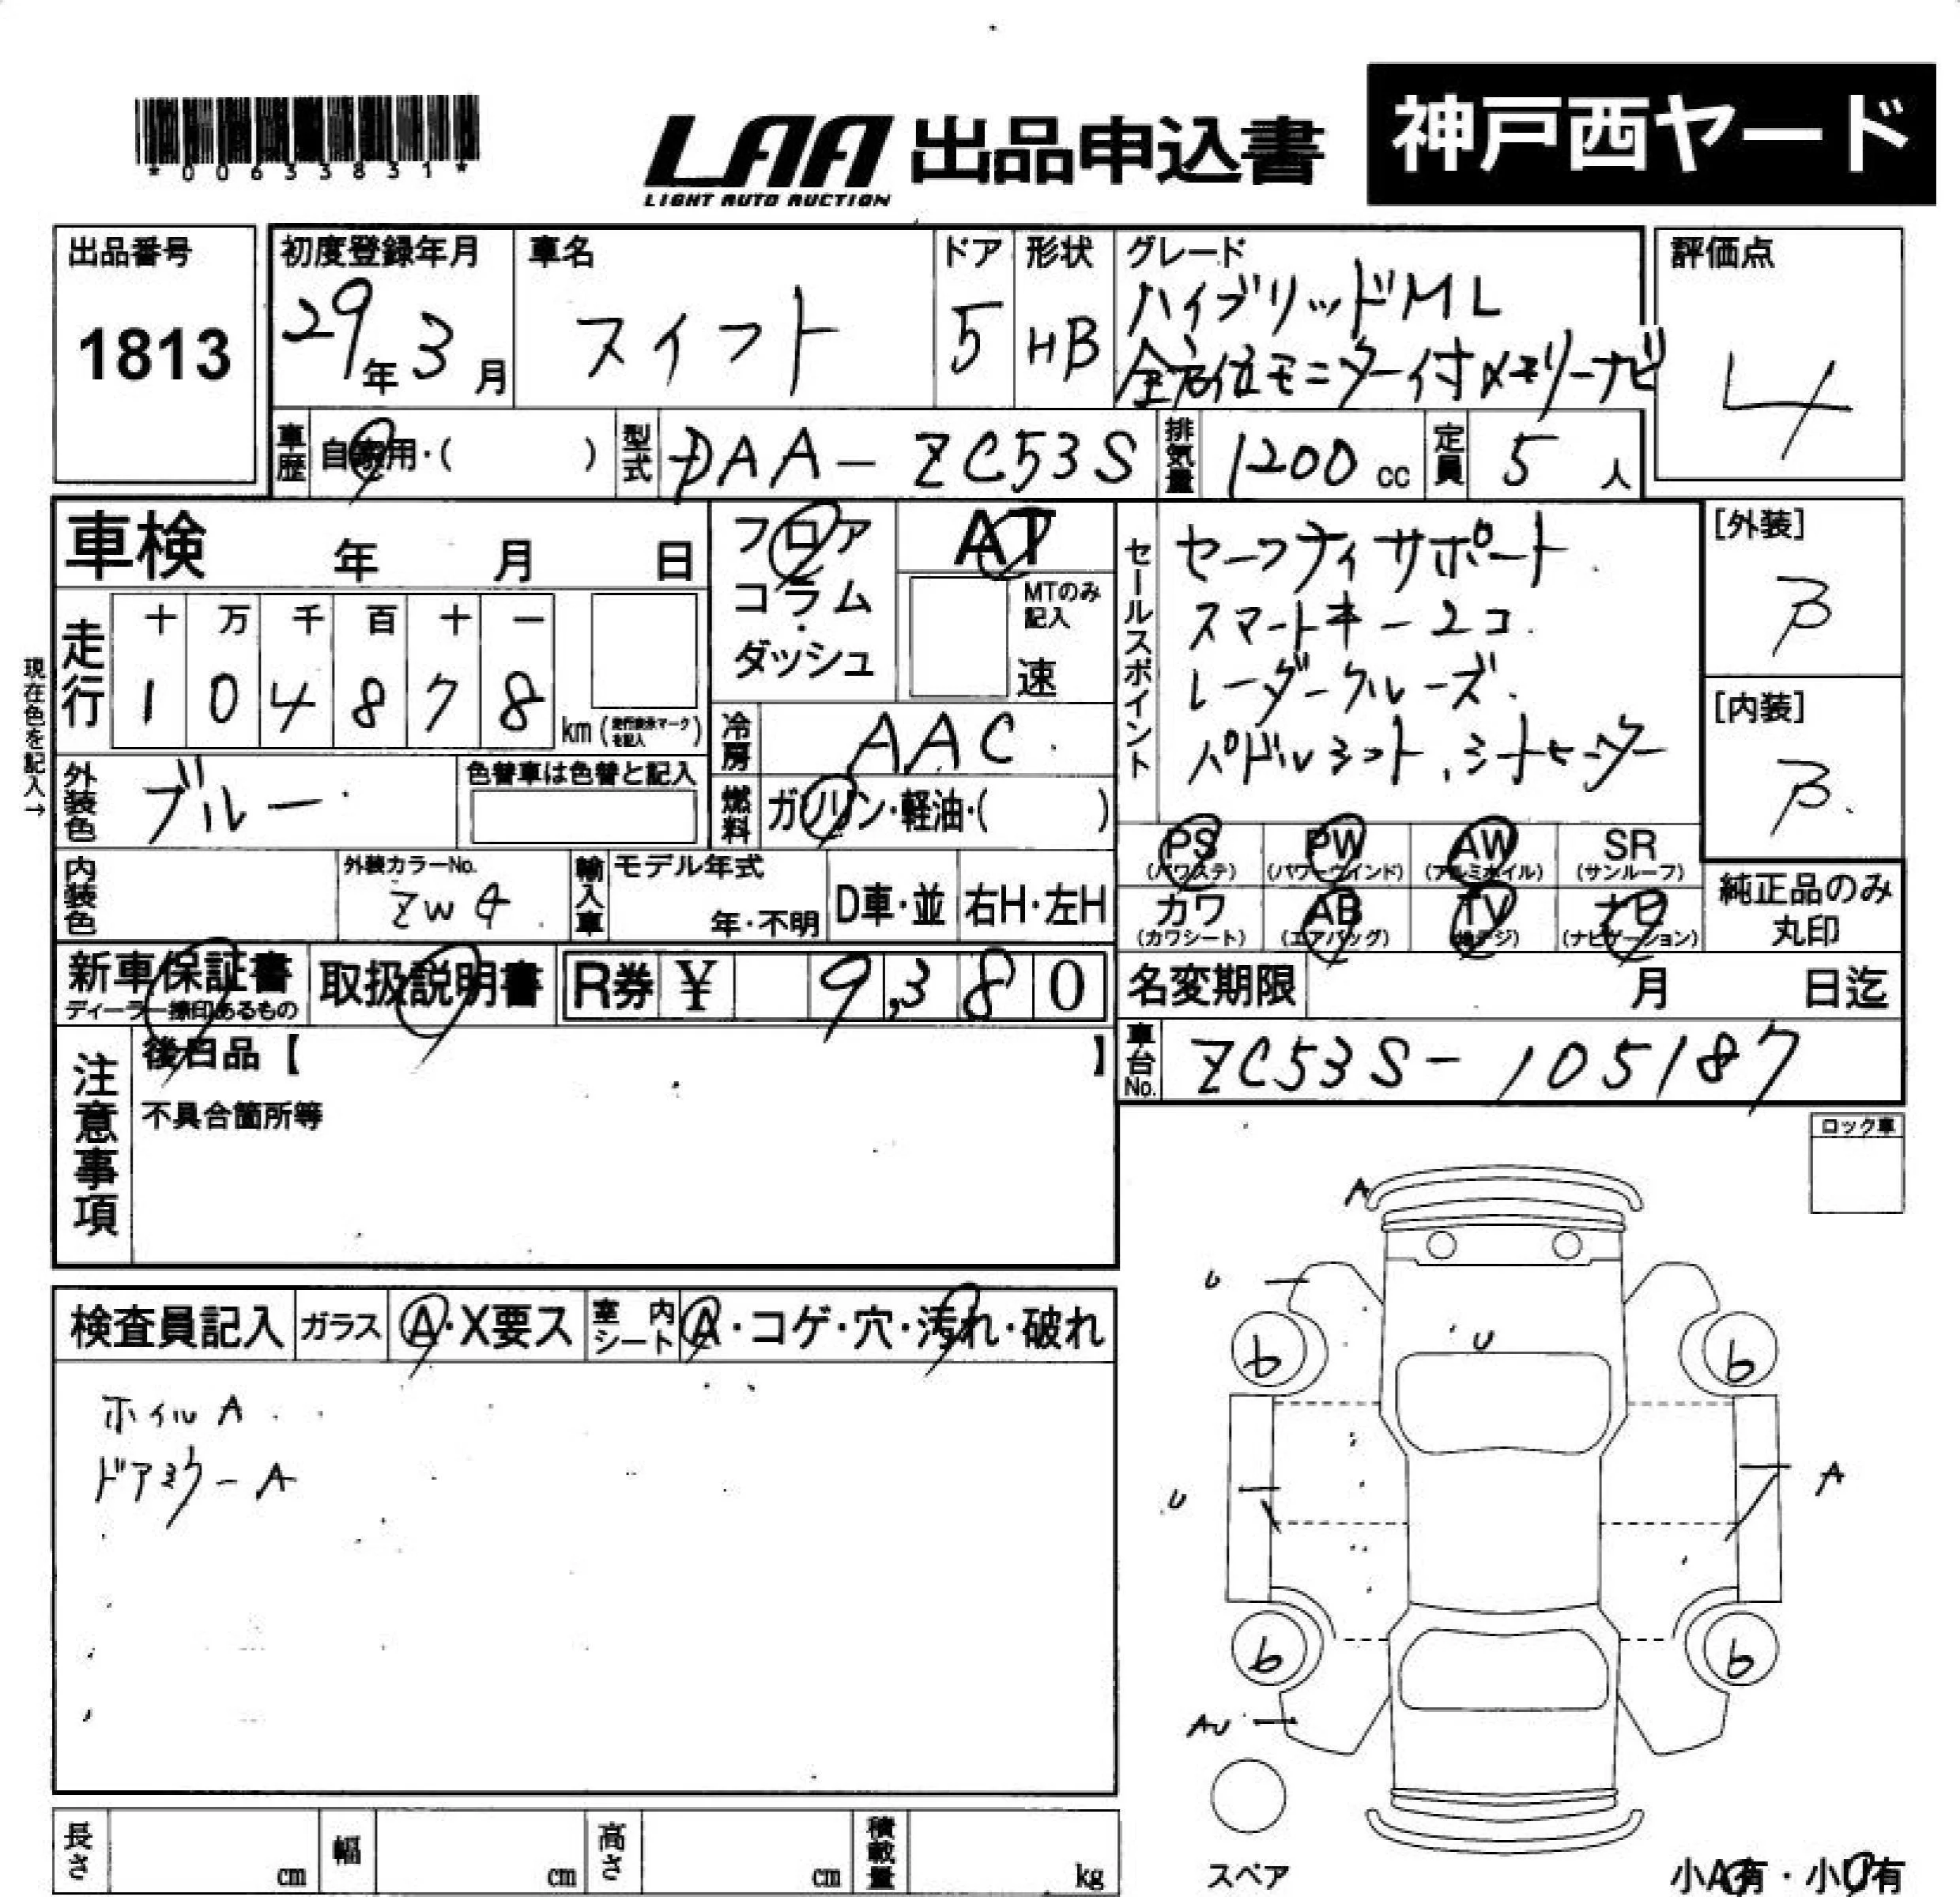 *00633831*
LAA 出品申込書 神戸西ヤード
LIGHT AUTO AUCTION
出品番号 初度登録年月 車名 ドア 形状 グレード 評価点
1813 29年3月 スイフト 5 HB ハイブリッドML 4
全方位モニター付メモリーナビ
車歴 自家用・( ) 型式 DAA-ZC53S 排気量 1200cc 定員 5人
車検 年 月 日 フロア AT
コラム・ MTのみ記入
ダッシュ 速
セールスポイント セーフティサポート
スマートキー2コ.
レーダークルーズ.
パドルシフト、シートヒーター
[外装] B
[内装] B
現在色を記入→
走行 十 万 千 百 十 一
1 0 4 8 7 8 km (走行要※マークを記入)
冷房 AAC
外装色 ブルー 色替車は色替と記入 燃料 ガソリン・軽油・( )
PS (パワステ) PW (パワーウインド) AW (アルミホイル) SR (サンルーフ)
内装色 外装カラーNo. ZW4 輸入車 モデル年式 年・不明 D車・並 右H・左H
カワ (カワシート) AB (エアバッグ) TV (地デジ) ナビ (ナビゲーション)
純正品のみ丸印
新車保証書 取扱説明書 R券 ¥ 9,380 名変期限 月 日迄
ディーラー捺印あるもの
車台No. ZC53S-105187
注意事項 後日品【 】
不具合箇所等
ロック車
検査員記入 ガラス A・X要ス 室内シート A・コゲ・穴・汚れ・破れ
ホイルA
ドアミラーA
A
U
U
b b
U A
b b
AU
スペア
長さ cm 幅 cm 高さ cm 積載量 kg
小A有・小U有